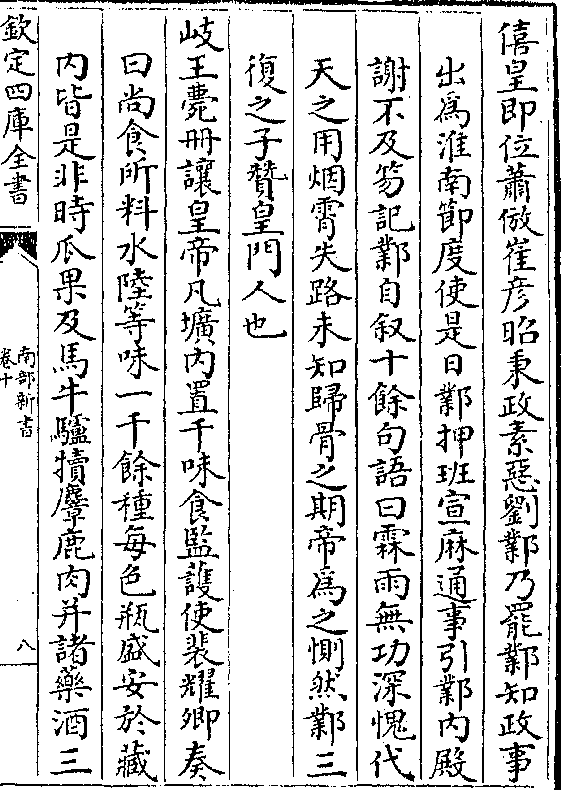 僖皇即位蕭倣崔彦昭秉政素惡劉鄴乃罷鄴知政事
出爲淮南節度使是日鄴押班宣麻通事引鄴内殿
謝不及笏記鄴自叙十餘句語曰霖雨無功深愧代
天之用烟霄失路未知歸骨之期帝爲之惻然鄴三
復之子贊皇門人也
岐王薨冊讓皇帝凡壙内置千味食監護使裴耀卿奏
曰尚食所料水陸等味一千餘種每色瓶盛安於藏
内皆是非時瓜果及馬牛驢犢麞鹿肉并諸藥酒三
欽定四庫全書
南部新書
卷十
八